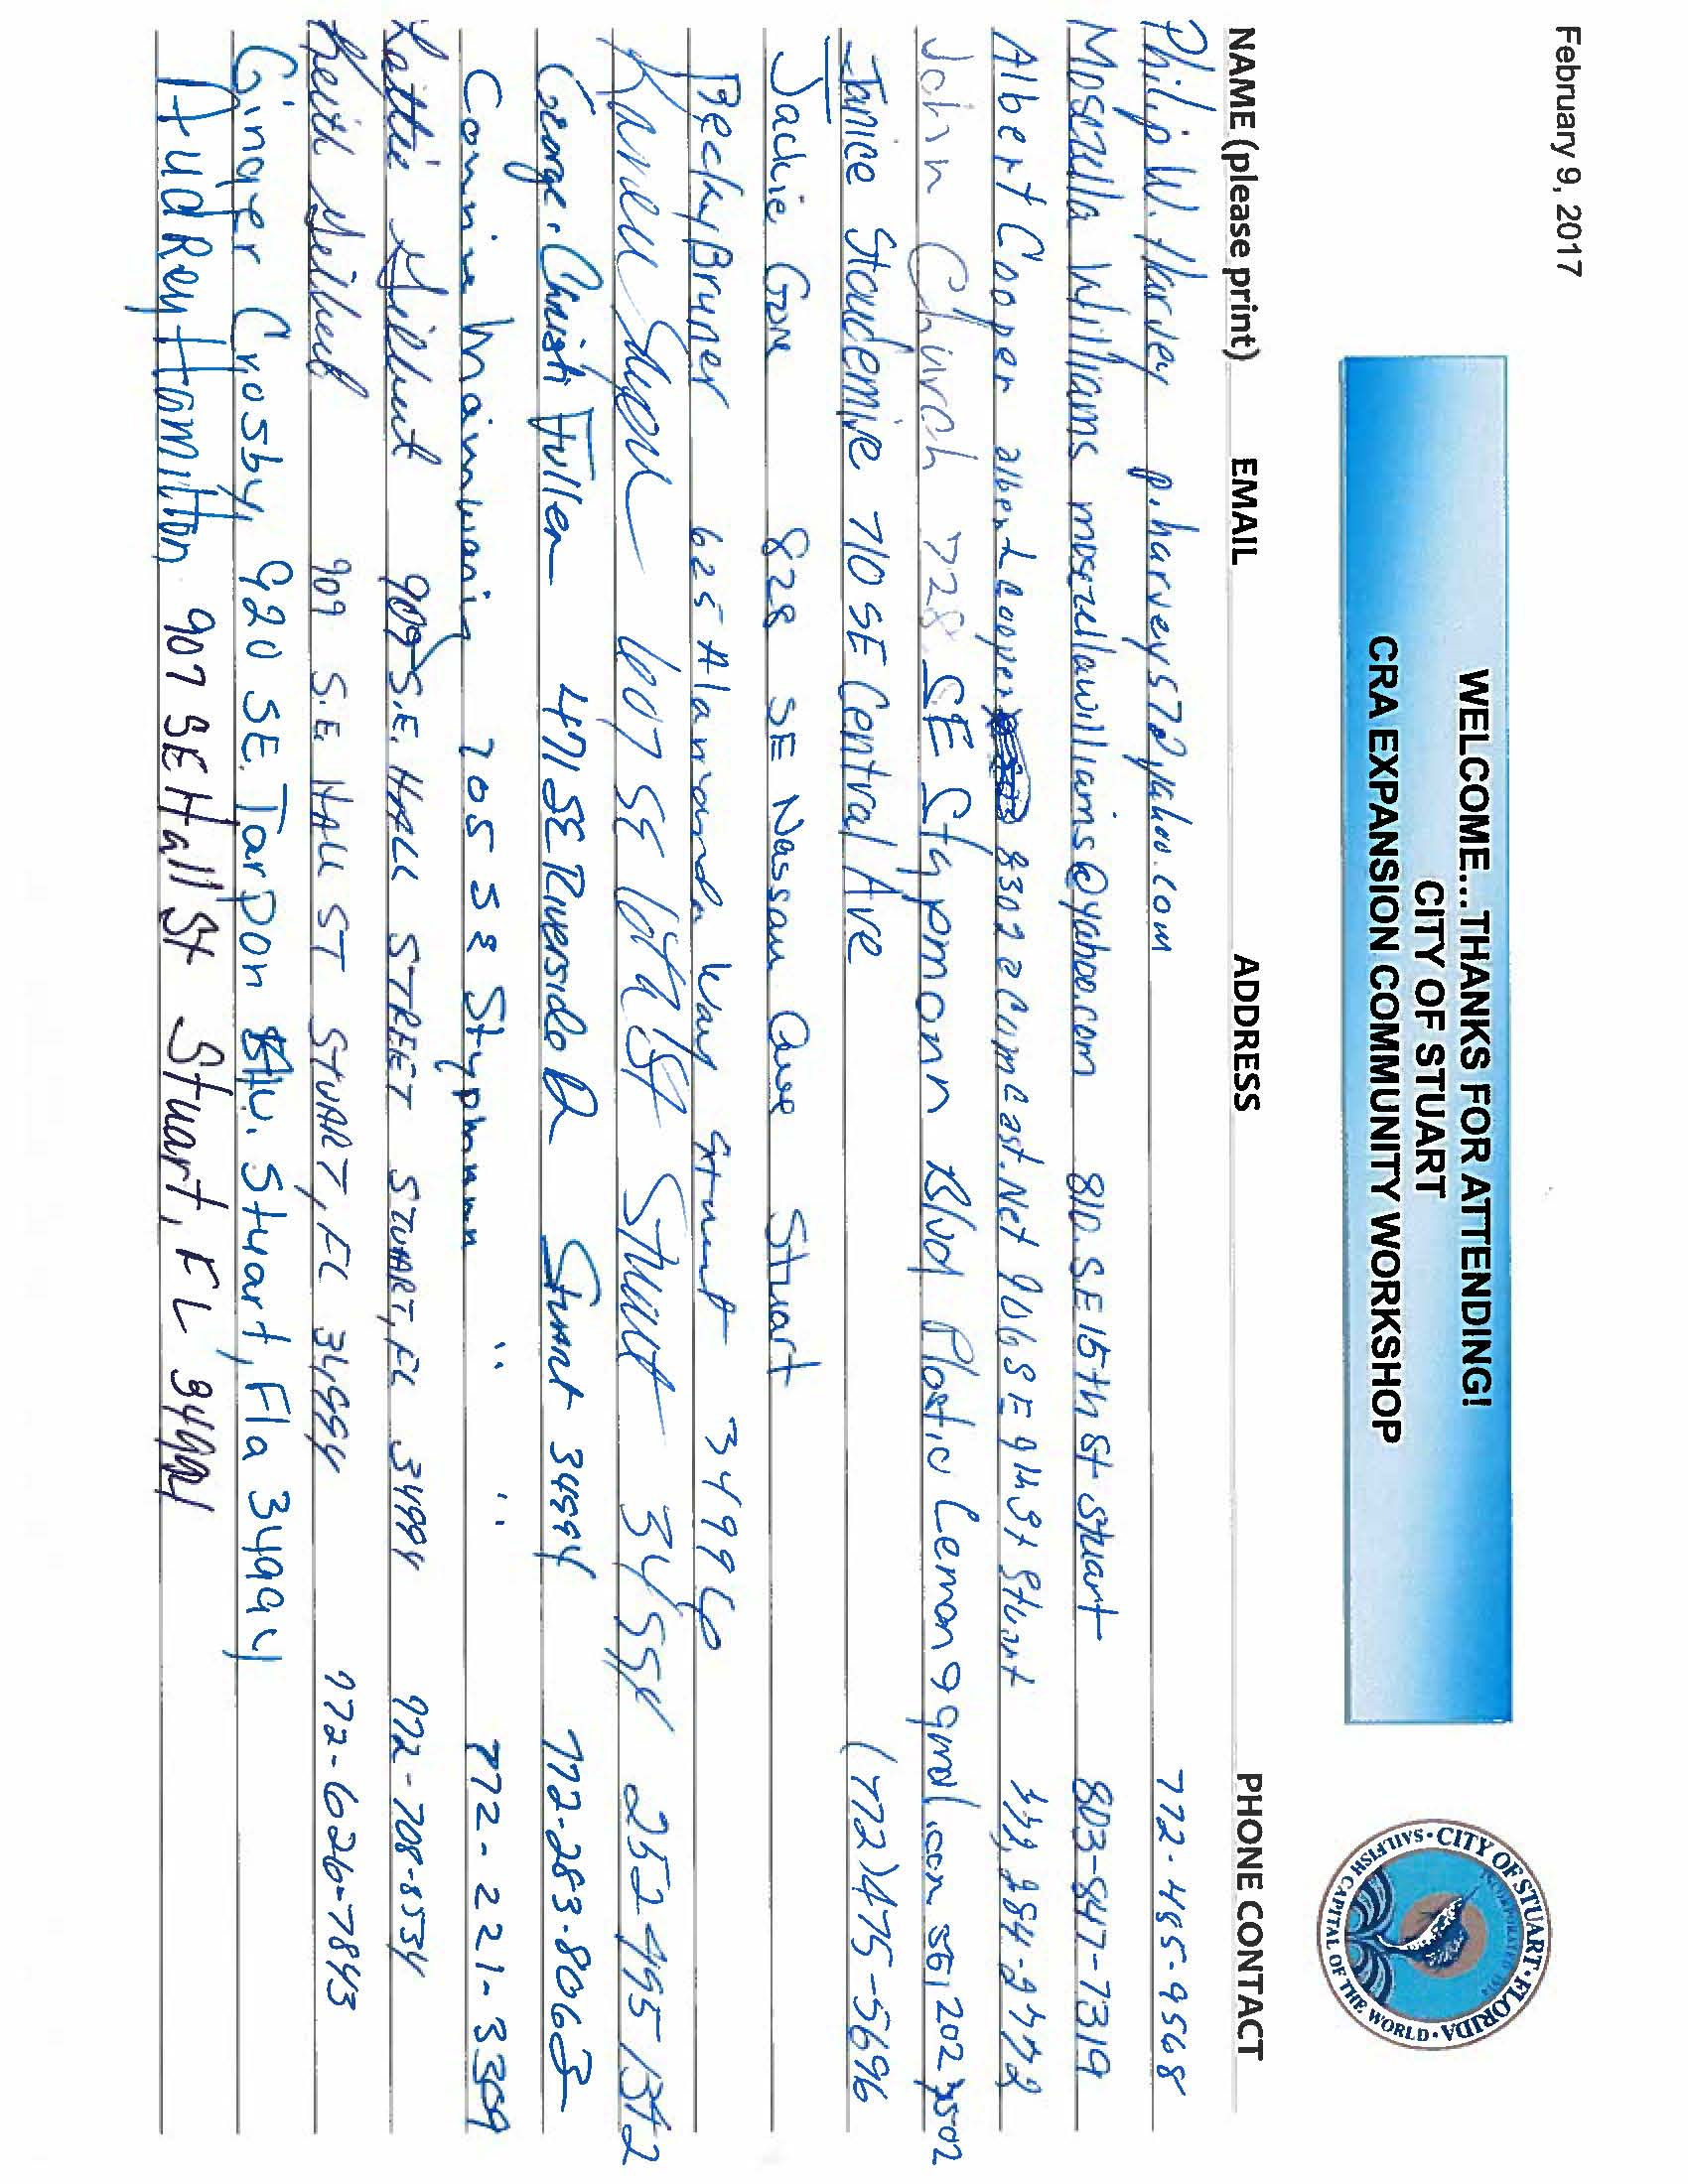 February 9, 2017
WELCOME...THANKS FOR ATTENDING!
CITY OF STUART
CRA EXPANSION COMMUNITY WORKSHOP
CITY OF STUART • FLORIDA • SAILFISH CAPITAL OF THE WORLD •
INCORPORATED 1914
NAME (please print) EMAIL ADDRESS PHONE CONTACT
Philip W. Harvey p.harvey57@yahoo.com 772-485-9568
Mosezella Williams mosezellawilliams@yahoo.com 810 SE 15th St Stuart 803-847-7319
Albert Cooper 906 SE 9th St Stuart
John Church 728 SE Stypmonn Blvd Plastic Lemon
Janice Stoudemire 710 SE Central Ave (772)475-5696
Jackie Gore 828 SE Nassau Ave Stuart
Becky Bruner 625 Alamanda Way Stuart 34996
Karen Sayer 607 SE 6th St Stuart 34994
George & Christi Fuller 471 SE Riverside Dr Stuart 34994 772-283-8063
Connie 205 SE Stypmann " " 772-221-3309
Kattie Gilbert 909 S.E. HALL STREET STUART, FL 34994 772-708-8534
Keith Gilbert 909 S.E. HALL ST STUART, FL 34994 772-626-7843
Ginger Crosby, 920 SE. Tarpon Av. Stuart, Fla 34994
Audrey Hamilton 907 SE Hall St Stuart, FL 34994